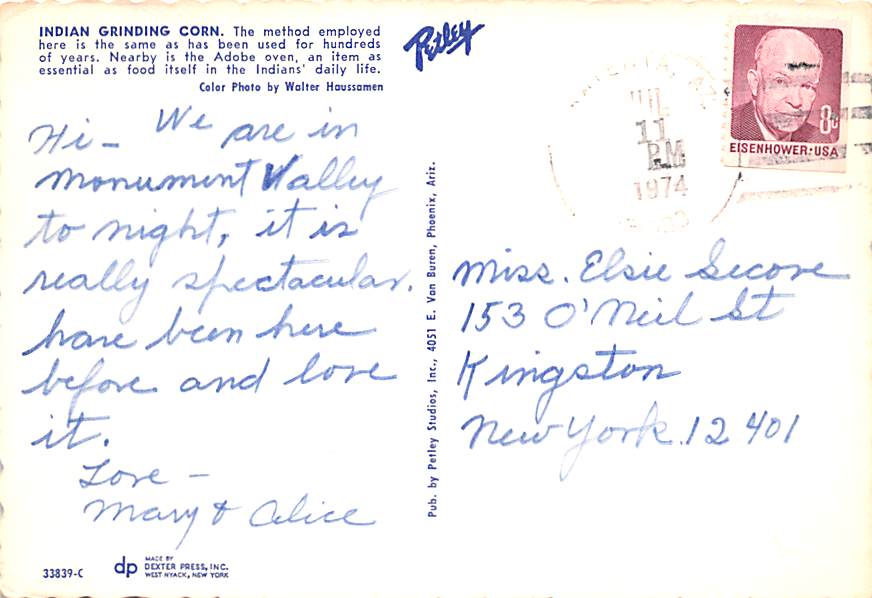 INDIAN GRINDING CORN. The method employed
here is the same as has been used for hundreds
of years. Nearby is the Adobe oven, an item as
essential as food itself in the Indians' daily life.
Color Photo by Walter Haussamen
Petley
Hi- We are in
Monument Valley
to night, it is
really spectacular.
have been here
before and love
it.
Love -
Mary & Alice
33839-C
dp
MADE BY
DEXTER PRESS, INC.
WEST NYACK, NEW YORK
Pub. by Petley Studios, Inc., 4051 E. Van Buren, Phoenix, Ariz.
11
PM
1974
8c
EISENHOWER·USA
Miss. Elsie Secore
153 O'Neil St
Kingston
New York. 12401